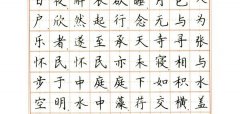 日夜解衣欲睡月色入
户欣然起行念无与为
乐者遂至承天寺寻张
怀民怀民亦未寝相与
步于中庭庭下如积水
空明水中藻荇交横盖